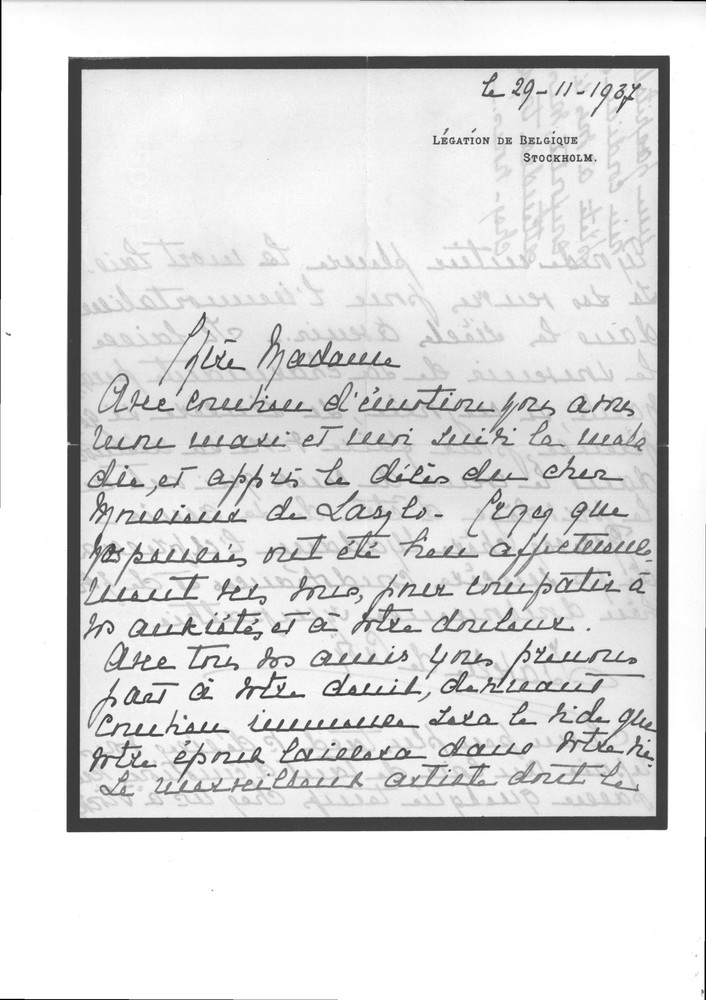 le 29-11-1937
LÉGATION DE BELGIQUE
STOCKHOLM.
Chère Madame
Avec combien d'émotion nous avons
mon mari et moi suivi la mala
die, et appris le décès du cher
Monsieur de Laszlo. Croyez que
nos pensées ont été bien affectueuse-
ment vers vous, pour compatir à
vos anxiétés, et à votre douleur.
Avec tous vos amis nous prenons
part à votre deuil, devinant
combien immense sera le vide que
votre époux laissera dans votre vie
Le merveilleux artiste dont le